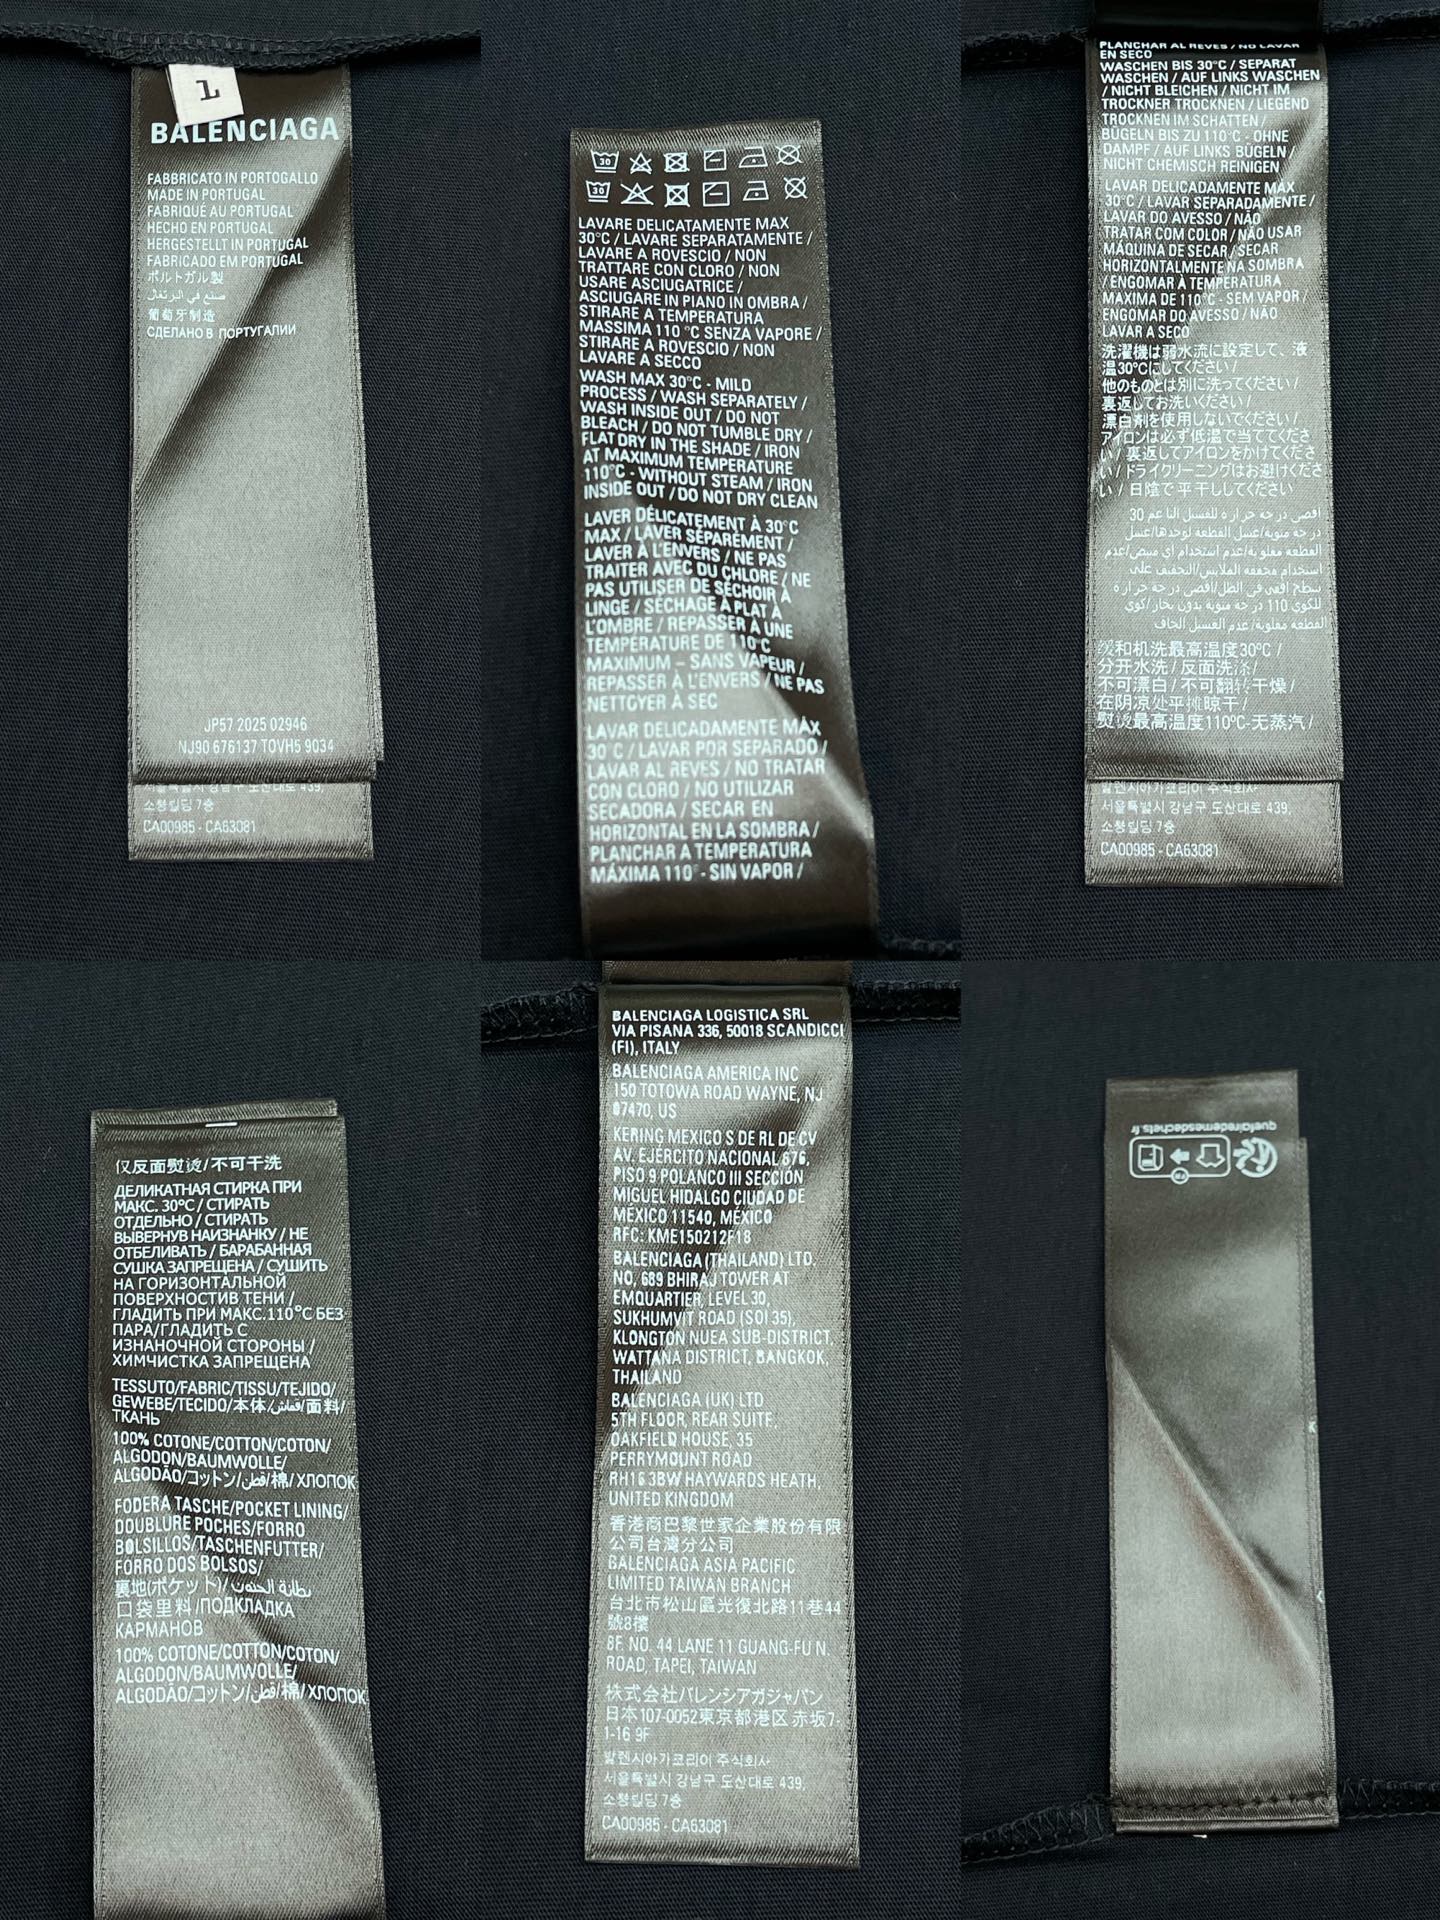 L
BALENCIAGA
FABBRICATO IN PORTOGALLO
MADE IN PORTUGAL
FABRIQUÉ AU PORTUGAL
HECHO EN PORTUGAL
HERGESTELLT IN PORTUGAL
FABRICADO EM PORTUGAL
ポルトガル製
صنع في البرتغال
葡萄牙制造
СДЕЛАНО В ПОРТУГАЛИИ
JP57 2025 02946
NJ90 676137 TOVH5 9034
서울특별시 강남구 도산대로 439,
소챙빌딩 7층
CA00985 - CA63081
30
30
LAVARE DELICATAMENTE MAX
30°C / LAVARE SEPARATAMENTE /
LAVARE A ROVESCIO / NON
TRATTARE CON CLORO / NON
USARE ASCIUGATRICE /
ASCIUGARE IN PIANO IN OMBRA /
STIRARE A TEMPERATURA
MASSIMA 110 °C SENZA VAPORE /
STIRARE A ROVESCIO / NON
LAVARE A SECCO
WASH MAX 30°C - MILD
PROCESS / WASH SEPARATELY /
WASH INSIDE OUT / DO NOT
BLEACH / DO NOT TUMBLE DRY /
FLAT DRY IN THE SHADE / IRON
AT MAXIMUM TEMPERATURE
110°C - WITHOUT STEAM / IRON
INSIDE OUT / DO NOT DRY CLEAN
LAVER DÉLICATEMENT À 30°C
MAX / LAVER SÉPARÉMENT /
LAVER À L'ENVERS / NE PAS
TRAITER AVEC DU CHLORE / NE
PAS UTILISER DE SÉCHOIR À
LINGE / SÉCHAGE À PLAT À
L'OMBRE / REPASSER À UNE
TEMPÉRATURE DE 110°C
MAXIMUM – SANS VAPEUR /
REPASSER À L'ENVERS / NE PAS
NETTOYER À SEC
LAVAR DELICADAMENTE MÁX
30°C / LAVAR POR SEPARADO /
LAVAR AL REVES / NO TRATAR
CON CLORO / NO UTILIZAR
SECADORA / SECAR EN
HORIZONTAL EN LA SOMBRA /
PLANCHAR A TEMPERATURA
MÁXIMA 110° - SIN VAPOR /
PLANCHAR AL REVES / NO LAVAR
EN SECO
WASCHEN BIS 30°C / SEPARAT
WASCHEN / AUF LINKS WASCHEN
/ NICHT BLEICHEN / NICHT IM
TROCKNER TROCKNEN / LIEGEND
TROCKNEN IM SCHATTEN /
BÜGELN BIS ZU 110°C - OHNE
DAMPF / AUF LINKS BÜGELN /
NICHT CHEMISCH REINIGEN
LAVAR DELICADAMENTE MAX
30°C / LAVAR SEPARADAMENTE /
LAVAR DO AVESSO / NÃO
TRATAR COM COLOR / NÃO USAR
MÁQUINA DE SECAR / SECAR
HORIZONTALMENTE NA SOMBRA
/ ENGOMAR À TEMPERATURA
MAXIMA DE 110°C - SEM VAPOR /
ENGOMAR DO AVESSO / NÃO
LAVAR A SECO
洗濯機は弱水流に設定して、液
温30°Cにしてください /
他のものとは別に洗ってください /
裏返してお洗いください /
漂白剤を使用しないでください /
アイロンは必ず低温で当ててくださ
い / 裏返してアイロンをかけてくださ
い / ドライクリーニングはお避けくださ
い / 日陰で平干ししてください
اقصى درجة حرارة للغسل الناعم 30
درجة مئوية/غسل القطعة لوحدها/غسل
القطعة مقلوبة/عدم استخدام أي مبيض/عدم
استخدام مجففة الملابس/التجفيف على
سطح افقي في الظل/اقصى درجة حرارة
للكوي 110 درجة مئوية بدون بخار/كوي
القطعة مقلوبة/عدم الغسل الجاف
缓和机洗最高温度30°C /
分开水洗 / 反面洗涤/
不可漂白 / 不可翻转干燥 /
在阴凉处平摊晾干 /
熨烫最高温度110°C-无蒸汽 /
발렌시아가코리아 주식회사
서울특별시 강남구 도산대로 439,
소챙빌딩 7층
CA00985 - CA63081
仅反面熨烫/不可干洗
ДЕЛИКАТНАЯ СТИРКА ПРИ
МАКС. 30°C / СТИРАТЬ
ОТДЕЛЬНО / СТИРАТЬ
ВЫВЕРНУВ НАИЗНАНКУ / НЕ
ОТБЕЛИВАТЬ / БАРАБАННАЯ
СУШКА ЗАПРЕЩЕНА / СУШИТЬ
НА ГОРИЗОНТАЛЬНОЙ
ПОВЕРХНОСТИВ ТЕНИ /
ГЛАДИТЬ ПРИ МАКС.110°C БЕЗ
ПАРА/ГЛАДИТЬ С
ИЗНАНОЧНОЙ СТОРОНЫ /
ХИМЧИСТКА ЗАПРЕЩЕНА
TESSUTO/FABRIC/TISSU/TEJIDO/
GEWEBE/TECIDO/本体/قماش/面料/
ТКАНЬ
100% COTONE/COTTON/COTON/
ALGODON/BAUMWOLLE/
ALGODÃO/コットン/قطن/棉/ХЛОПОК
FODERA TASCHE/POCKET LINING/
DOUBLURE POCHES/FORRO
BOLSILLOS/TASCHENFUTTER/
FORRO DOS BOLSOS/
裏地(ポケット)/بطانة الجيوب/
口袋里料/ПОДКЛАДКА
КАРМАНОВ
100% COTONE/COTTON/COTON/
ALGODON/BAUMWOLLE/
ALGODÃO/コットン/قطن/棉/ХЛОПОК
BALENCIAGA LOGISTICA SRL
VIA PISANA 336, 50018 SCANDICCI
(FI), ITALY
BALENCIAGA AMERICA INC
150 TOTOWA ROAD WAYNE, NJ
07470, US
KERING MEXICO S DE RL DE CV
AV. EJERCITO NACIONAL 676,
PISO 9 POLANCO III SECCIÓN
MIGUEL HIDALGO CIUDAD DE
MÉXICO 11540, MÉXICO
RFC: KME150212F18
BALENCIAGA (THAILAND) LTD.
NO, 689 BHIRAJ TOWER AT
EMQUARTIER, LEVEL 30,
SUKHUMVIT ROAD (SOI 35),
KLONGTON NUEA SUB-DISTRICT,
WATTANA DISTRICT, BANGKOK,
THAILAND
BALENCIAGA (UK) LTD
5TH FLOOR, REAR SUITE,
OAKFIELD HOUSE, 35
PERRYMOUNT ROAD
RH16 3BW HAYWARDS HEATH,
UNITED KINGDOM
香港商巴黎世家企業股份有限
公司台灣分公司
BALENCIAGA ASIA PACIFIC
LIMITED TAIWAN BRANCH
台北市松山區光復北路11巷44
號8樓
8F. NO. 44 LANE 11 GUANG-FU N.
ROAD, TAPEI, TAIWAN
株式会社バレンシアガジャパン
日本107-0052東京都港区赤坂7-
1-16 9F
발렌시아가코리아 주식회사
서울특별시 강남구 도산대로 439,
소챙빌딩 7층
CA00985 - CA63081
quefairedemesdechets.fr
FR